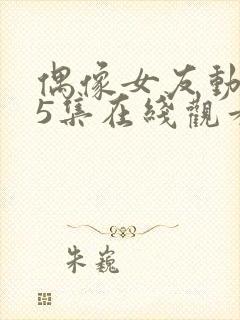 偶像女友動
5集在綫觀
朱巍